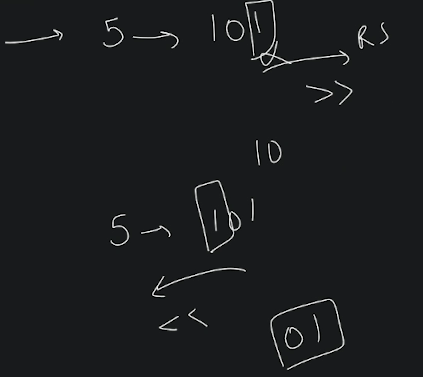 → 5 → 101 RS
>>
10
5 → 101
<<
01